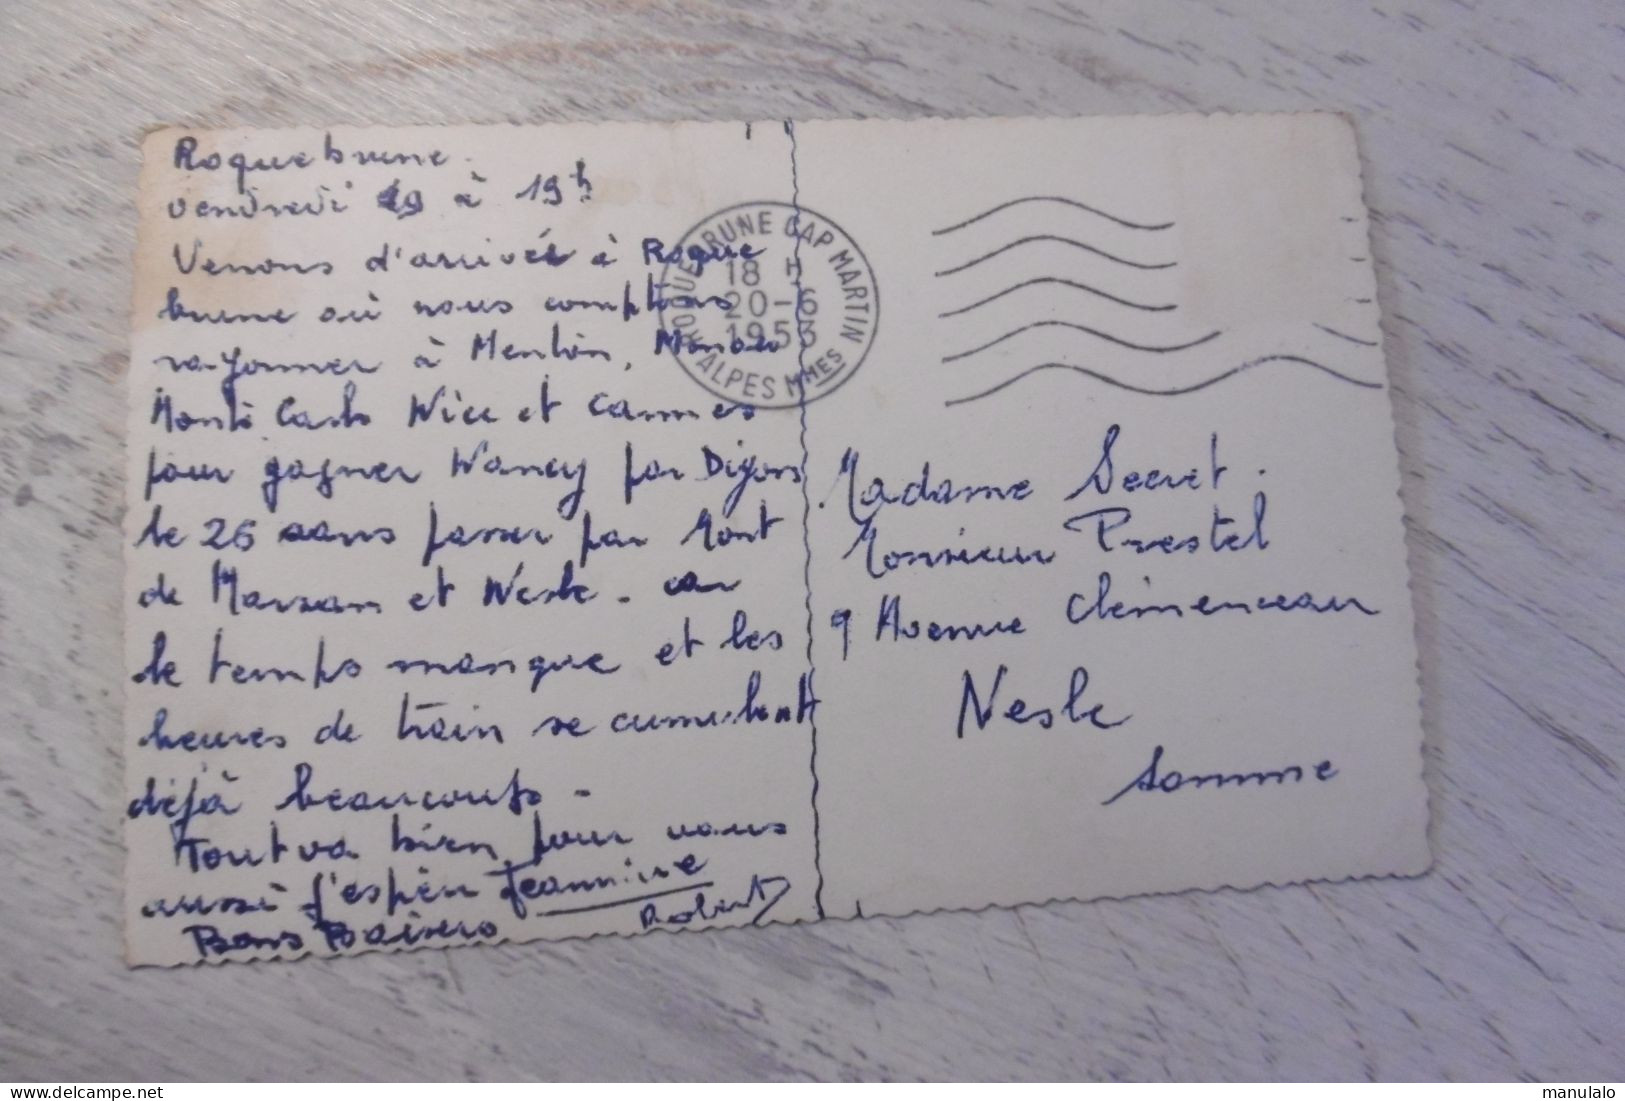 Roquebrune.
vendredi 19 à 19h
Venons d'arriver à Roque
brune où nous comptons
rayonner à Menton, Monaco
Monte Carlo Nice et Cannes
pour gagner Nancy par Dijon
le 26 sans passer par Mont
de Marsan et Nesle. car
le temps manque et les
heures de train se cumulent
déjà beaucoup.
Tout va bien, pour vous
aussi j'espère Jeannine
Bons Baisers Robert
ROQUEBRUNE CAP MARTIN
18 H
20-6
1953
ALPES MMES
Madame Secret.
Monsieur Prestel
9 Avenue Clémenceau
Nesle
Somme
www.delcampe.net
manulalo